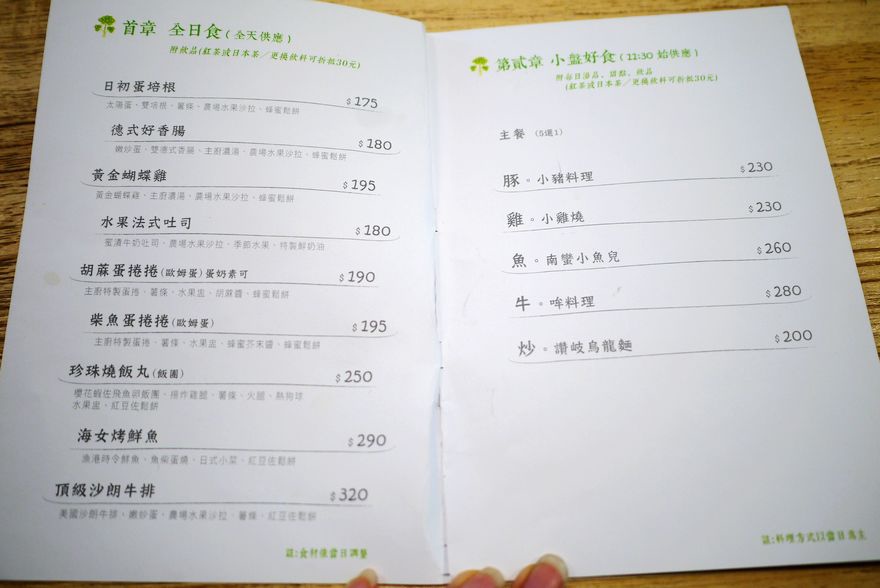 首章 全日食(全天供應)
附飲品(紅茶或日本茶／更換飲料可折抵30元)
日初蛋培根 $175
太陽蛋、雙培根、薯條、農場水果沙拉、蜂蜜鬆餅
德式好香腸 $180
嫩炒蛋、雙德式香腸、主廚濃湯、農場水果沙拉、蜂蜜鬆餅
黃金蝴蝶雞 $195
黃金蝴蝶雞、主廚濃湯、農場水果沙拉、蜂蜜鬆餅
水果法式吐司 $180
蜜漬牛奶吐司、農場水果沙拉、季節水果、特製鮮奶油
胡蔴蛋捲捲(歐姆蛋)蛋奶素可 $190
主廚特製蛋捲、薯條、水果盅、胡麻醬、蜂蜜鬆餅
柴魚蛋捲捲(歐姆蛋) $195
主廚特製蛋捲、薯條、水果盅、蜂蜜芥末醬、蜂蜜鬆餅
珍珠燒飯丸(飯團) $250
櫻花蝦佐飛魚卵飯團、揚炸雞腿、薯條、火腿、熱狗球
水果盅、紅豆佐鬆餅
海女烤鮮魚 $290
漁港時令鮮魚、魚柴蛋燒、日式小菜、紅豆佐鬆餅
頂級沙朗牛排 $320
美國沙朗牛排、嫩炒蛋、農場水果沙拉、薯條、紅豆佐鬆餅
註:食材依當日調整
第貳章 小盤好食(11:30 始供應)
附每日湯品、甜點、飲品
(紅茶或日本茶／更換飲料可折抵30元)
主餐 (5選1)
豚。小豬料理 $230
雞。小雞燒 $230
魚。南蠻小魚兒 $260
牛。哞料理 $280
炒。讚岐烏龍麵 $200
註:料理方式以當日為主